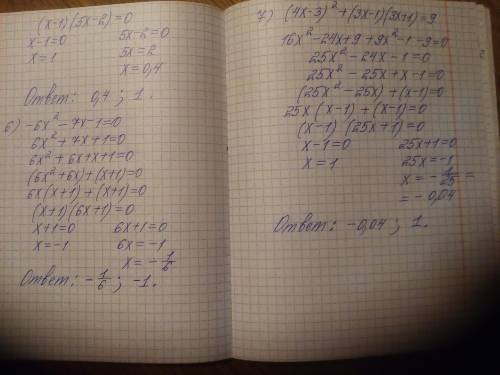 (x-1)(5x-2)=0
x-1=0 5x-2=0
x=1 5x=2
x=0,4
Ответ: 0,4; 1.
6) -6x²-7x-1=0
6x²+7x+1=0
6x²+6x+x+1=0
(6x²+6x)+(x+1)=0
6x(x+1)+(x+1)=0
(x+1)(6x+1)=0
x+1=0 6x+1=0
x=-1 6x=-1
x=-1/6
Ответ: -1/6; -1.
7) (4x-3)²+(3x-1)(3x+1)=9
16x²-24x+9+9x²-1-9=0
25x²-24x-1=0
25x²-25x+x-1=0
(25x²-25x)+(x-1)=0
25x(x-1)+(x-1)=0
(x-1)(25x+1)=0
x-1=0 25x+1=0
x=1 25x=-1
x=-1/25=
=-0,04
Ответ: -0,04; 1.